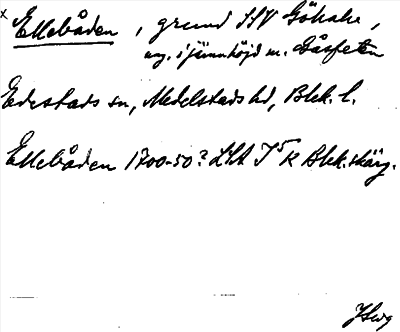 x Ellebåden, grund SSV Gökalv,
ung. i jämnhöjd m. Gåsfeten
Edestads sn, Medelstads hd, Blek. l.
Ellebåden 1700-50? LSA I⁵ K Blek. skärg.